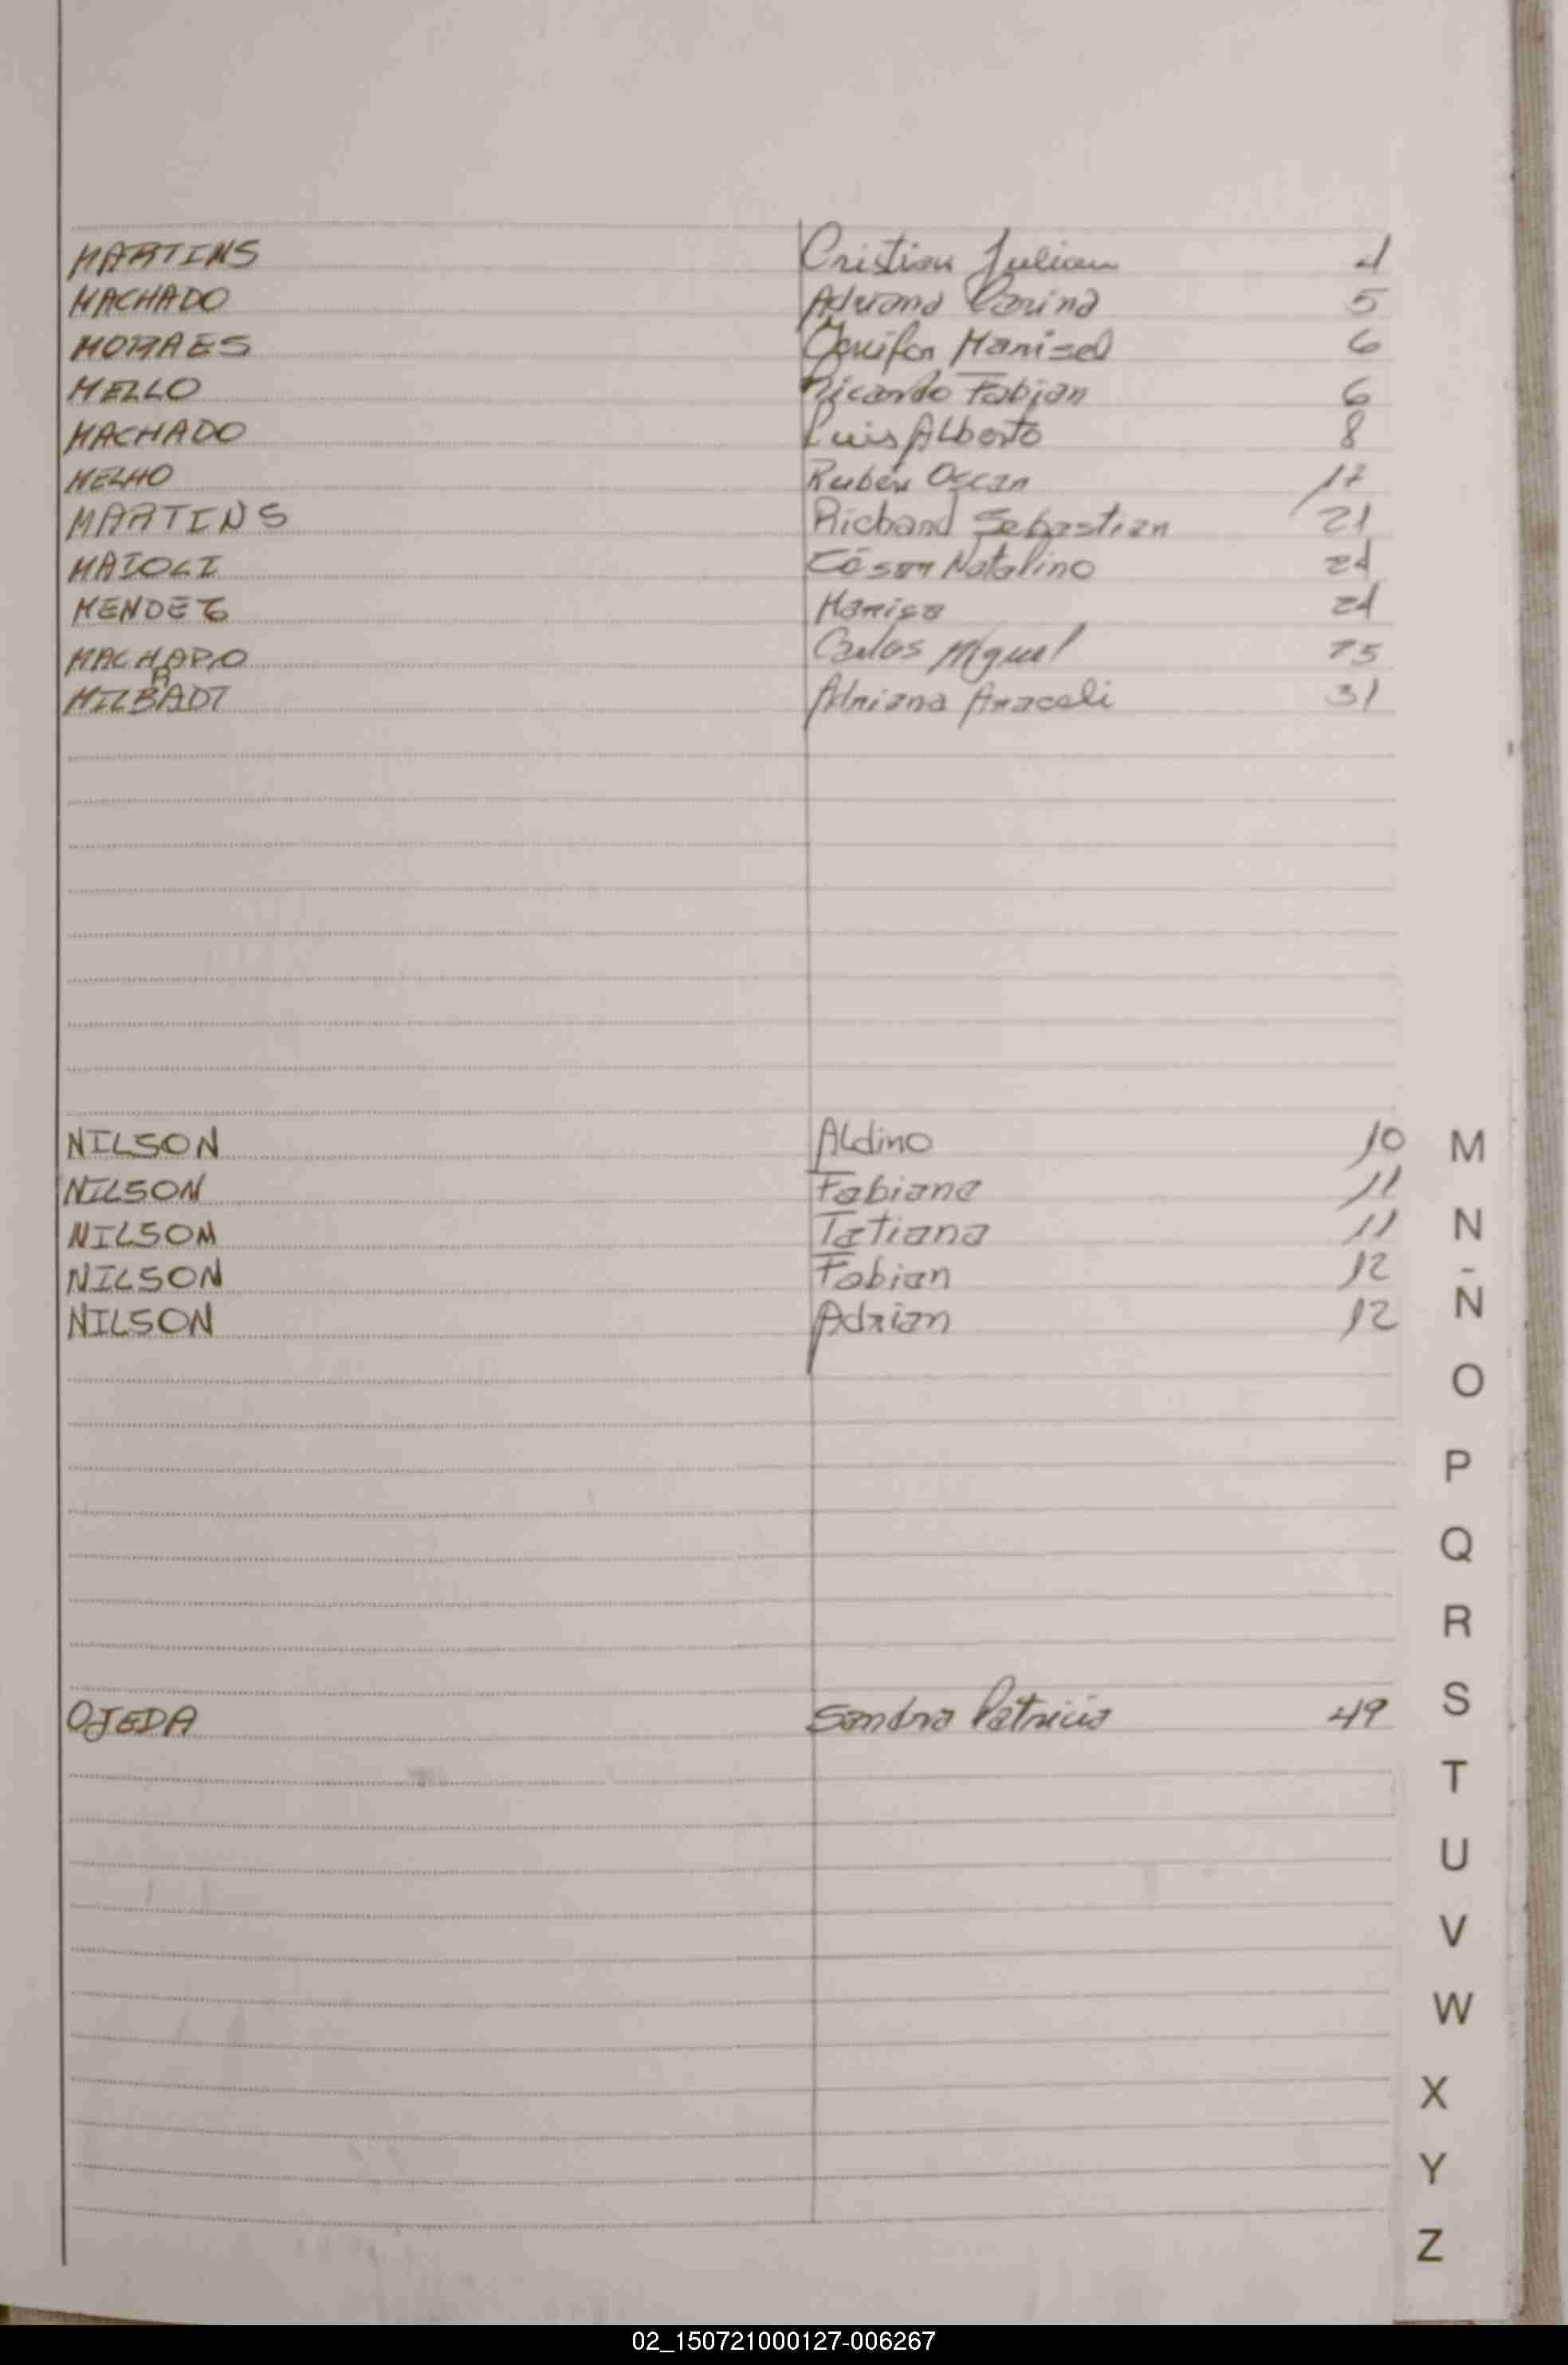 MARTINS Cristian Julian 4
MACHADO Adriana Carina 5
MORAES Jenifer Marisel 6
MELLO Ricardo Fabian 6
MACHADO Luis ALberto 8
MELHO Rubén Oscar 17
MARTINS Richard Sebastian 21
MAIOLI César Natalino 24
MENDES Marisa 24
MACHADO Carlos Miguel 25
MILBADT Adriana Araceli 31
NILSON ALdino 10 M
NILSON Fabiana 11
NILSON Tatiana 11 N
NILSON Fabian 12
NILSON Adrian 12 Ñ
O
P
Q
R
S
OJEDA Sandra Patricia 49
T
U
V
W
X
Y
Z
02_150721000127-006267